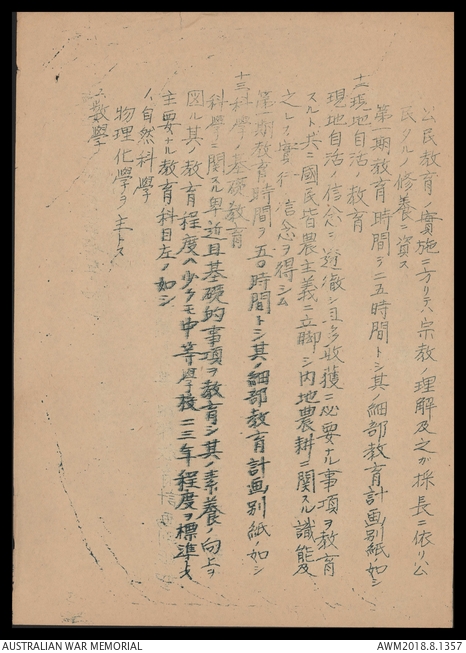 公民教育ノ實施ニ方リテハ宗教ノ理解及之ガ採長ニ依リ公
民タルノ修養ニ資ス
十二、現地自活ノ教育
第一期教育時間ヲ二五時間トシ其ノ細部教育計画別紙ノ如シ
現地自活ノ信念ニ透徹シ且多收獲ニ必要ナル事項ヲ教育
スルト共ニ國民皆農主義ニ立脚シ内地農耕ニ関スル識能及
之レガ實行ノ信念ヲ得シム
十三、科學ノ基礎教育
第一期教育時間ヲ五〇時間トシ其ノ細部教育計画別紙ノ如シ
科學ニ関スル卑近且基礎的事項ヲ教育シ其ノ素養ノ向上ヲ
図ル其ノ教育程度ハ少クモ中等學校二三年程度ヲ標準トス
主要ナル教育科目左ノ如シ
1、自然科學
物理化學ヲ主トス
2、數學
AUSTRALIAN WAR MEMORIAL
AWM2018.8.1357